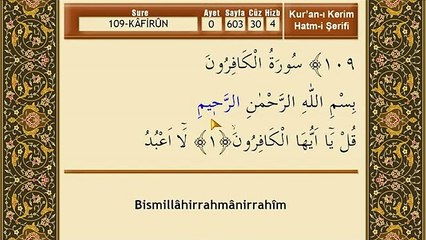 Sure Ayet Sayfa Cüz Hizb
109-KÂFİRÛN 0 603 30 4
Kur'an-ı Kerim
Hatm-i Şerifi
﴿١٠٩﴾ سُورَةُ الْكَافِرُونَ
بِسْمِ اللهِ الرَّحْمٰنِ الرَّحِيمِ
قُلْ يَا اَيُّهَا الْكَافِرُونَۙ ﴿١﴾ لَٓا اَعْبُدُ
Bismillâhirrahmânirrahîm